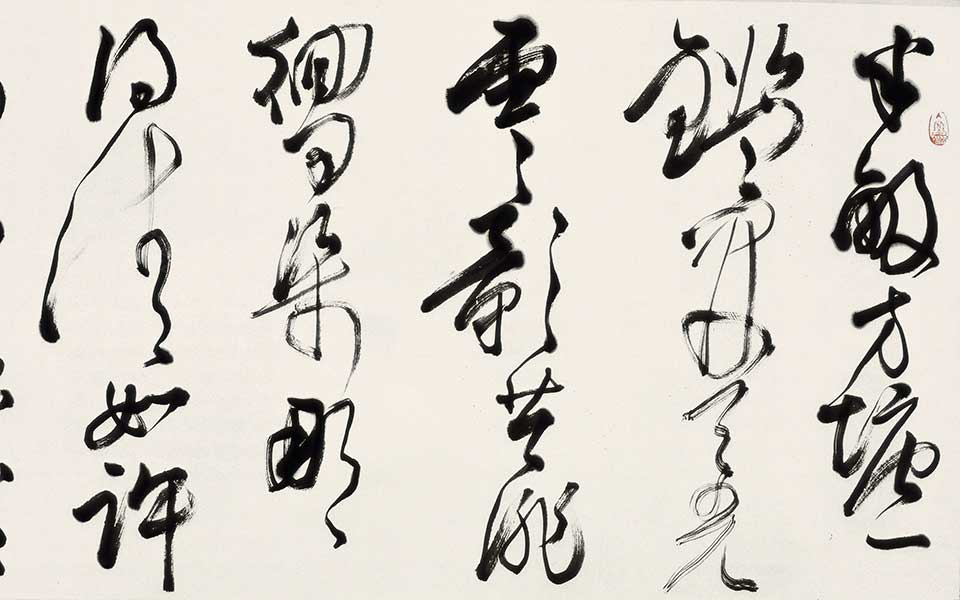 半畝方塘一
鑑開天光
雲影共徘
徊問渠那
得清如許